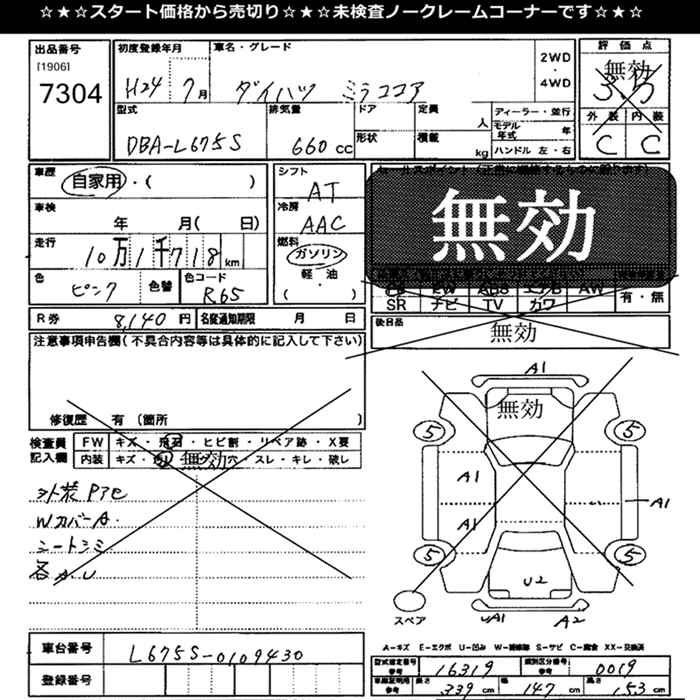 ☆★☆スタート価格から売切り☆★☆未検査ノークレームコーナーです☆★☆
出品番号 初度登録年月 車名・グレード 2WD・4WD 評価点
[1906]
7304 H24 7月 ダイハツ ミラココア 無効 3.5
外装 内装
型式 排気量 ドア 定員 人 ディーラー・並行
DBA-L675S 660cc 形状 積載 kg モデル年式 年 C C
ハンドル 左・右
車歴 自家用・( ) シフト AT
車検 年 月( 日) 冷房 AAC 無効
走行 10万1千718km 燃料 ガソリン
軽・油
( )
色 ピンク 色替 色コード R65
SR ナビ TV カワ 有・無
R券 8,140円 名変通知期限 月 日 後日品 無効
注意事項申告欄(不具合内容等は具体的に記入して下さい)
修復歴 有 (箇所 )
検査員記入欄 FW キズ・飛石・ヒビ割・リペア跡・X要
内装 キズ・ 無効 穴・スレ・キレ・破し
外装Pアセ
WカバーA.
シートシミ
各A.U
A1
無効
5 5
A1
A1 A1
5 5
U2
スペア A1 A2
車台番号 L675S-0109430
登録番号
A-キズ E-エクボ U-凹み W-補修跡 S-サビ C-腐食 XX-交換済
型式指定番号 参考 16319 類別区分番号 参考 0019
車庫証明用 参考 長さ 339cm 幅 147cm 高さ 153cm